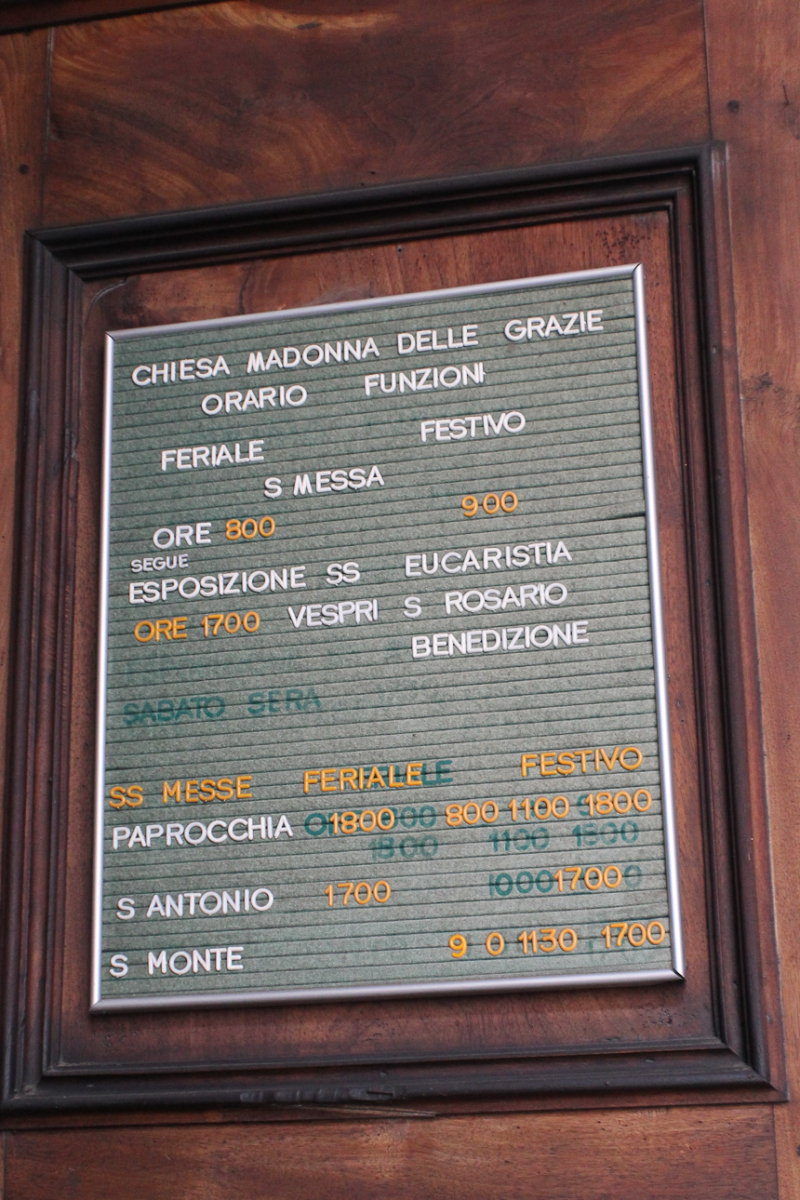 CHIESA MADONNA DELLE GRAZIE
ORARIO FUNZIONI
FERIALE FESTIVO
S MESSA
ORE 800 900
SEGUE
ESPOSIZIONE SS EUCARISTIA
ORE 1700 VESPRI S ROSARIO
BENEDIZIONE
SABATO SERA
SS MESSE FERIALE FESTIVO
PAPROCCHIA 1800 800 1100 1800
1800 1100 1800
S ANTONIO 1700 1000 1700
S MONTE 9 0 1130 1700